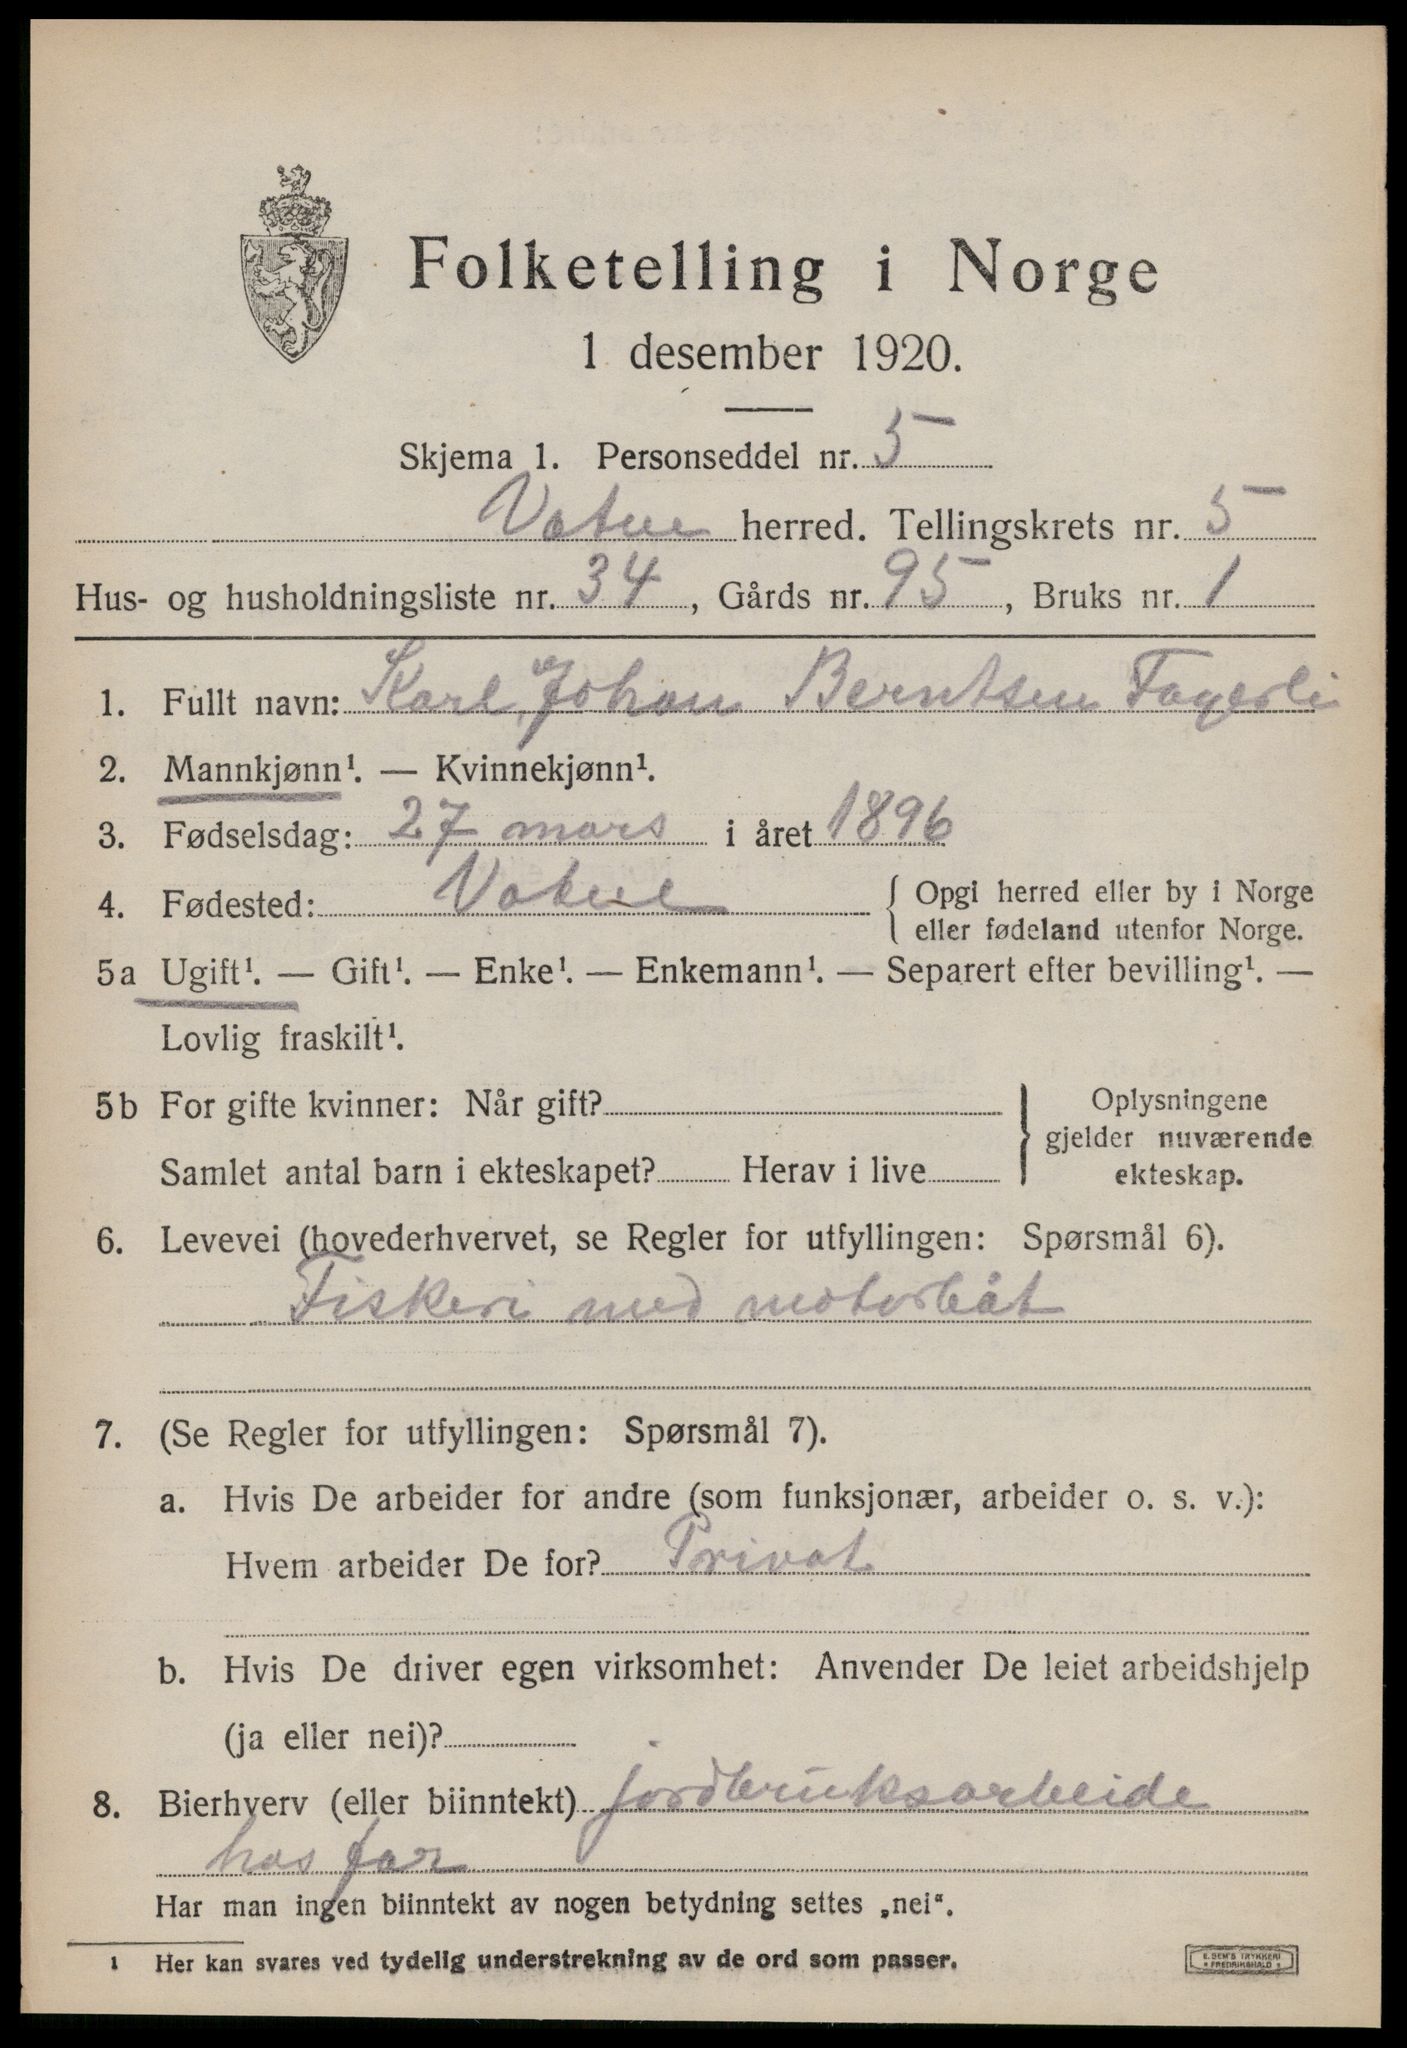 Folketelling i Norge
1 desember 1920.
Skjema 1. Personseddel nr. 5
Vatne herred. Tellingskrets nr. 5
Hus- og husholdningsliste nr. 34, Gårds nr. 95, Bruks nr. 1
1. Fullt navn: Karl Johan Berntsen Fagerli
2. Mannkjønn¹. — Kvinnekjønn¹.
3. Fødselsdag: 27 mars i året 1896
4. Fødested: Vatne { Opgi herred eller by i Norge
eller fødeland utenfor Norge.
5a Ugift¹. — Gift¹. — Enke¹. — Enkemann¹. — Separert efter bevilling¹. —
Lovlig fraskilt¹.
5b For gifte kvinner: Når gift? } Oplysningene
gjelder nuværende
Samlet antal barn i ekteskapet? Herav i live ekteskap.
6. Levevei (hovederhvervet, se Regler for utfyllingen: Spørsmål 6).
Fiskeri med motorbåt
7. (Se Regler for utfyllingen: Spørsmål 7).
a. Hvis De arbeider for andre (som funksjonær, arbeider o. s. v.):
Hvem arbeider De for? Privat
b. Hvis De driver egen virksomhet: Anvender De leiet arbeidshjelp
(ja eller nei)?
8. Bierhverv (eller biinntekt) jordbruksarbeide
hos far
Har man ingen biinntekt av nogen betydning settes „nei“.
1 Her kan svares ved tydelig understrekning av de ord som passer.
E. SEM'S TRYKKERI
FREDRIKSHALD